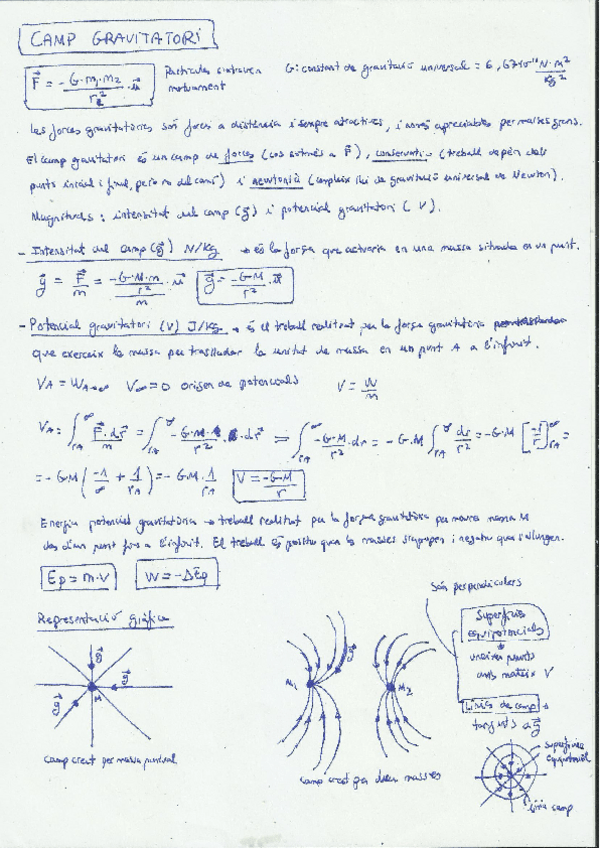 CAMP GRAVITATORI
F⃗ = -G·m₁·m₂/r² · u⃗ Partícules s'atrauen mútuament G: constant de gravitació universal = 6,67·10⁻¹¹ N·m²/kg²
Les forces gravitatòries són forces a distància i sempre atractives, i només apreciables per masses grans.
El camp gravitatori és un camp de forces (cos sotmès a F⃗), conservatiu (treball depèn dels
punts inicial i final, però no del camí) i newtonià (compleix llei de gravitació universal de Newton).
Magnituds: intensitat del camp (g⃗) i potencial gravitatori (V).
- Intensitat del camp (g⃗) N/Kg → és la força que actuaria en una massa situada en un punt.
g⃗ = F⃗/m = -G·M·m/r²/m · u⃗ g⃗ = -G·M/r² · u⃗
- Potencial gravitatori (V) J/Kg → és el treball realitzat per la força gravitatòria
que exerceix la massa per traslladar la unitat de massa en un punt A a l'infinit.
V_A = W_A→∞ V∞ = 0 origen de potencials V = W/m
V_A = ∫_rA^∞ F⃗·dr⃗/m = ∫_rA^∞ -G·M/r² · dr⃗ = ∫_rA^∞ -G·M/r² dr = -G·M ∫_rA^∞ dr/r² = -G·M [-1/r]_rA^∞ =
= -G·M (-1/∞ + 1/rA) = -G·M·1/rA V = -G·M/r
Energia potencial gravitatòria → treball realitzat per la força gravitatòria per moure massa M
des d'un punt fins a l'infinit. El treball és positiu quan les masses s'apropen i negatiu quan s'allunyen.
Ep = m·V W = -ΔEp
Representació gràfica
Són perpendiculars
Superfícies
equipotencials
uneixen punts
amb mateix V
Línies de camp →
tangents a g⃗
g⃗
M
M₁
M₂
superfície
equipotencial
línia camp
camp creat per massa puntual
camp creat per dues masses